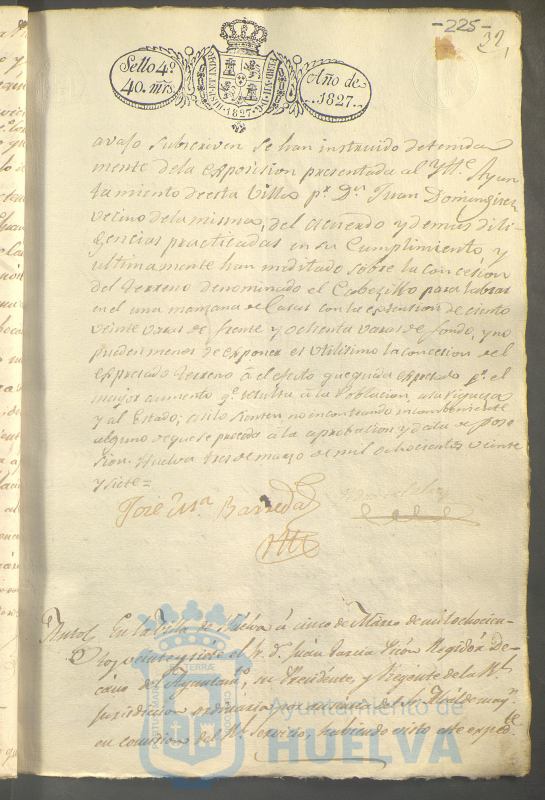 -225-
32
Sello 4º
40. mrs.
Año de
1827.
avajo subscriven se han instruido detenida
mente de la exposicion presentada al Ylle. Ayun
tamiento de esta Villa pr. Dn. Juan Dominguez
vecino de la misma, del acuerdo y demas dili
gencias practicadas en su Cumplimiento y
ultimamente han meditado sobre la concesion
del Terreno denominado el Cabezillo para labrar
en el una manzana de Casas con la extension de ciento
veinte varas de frente y ochenta varas de fondo, y no
pueden menos de exponer es utilisimo la concesion del
expresado terreno á el efecto que queda expresado pr. el
mayor aumento qe. resulta á la Poblacion, a la riqueza
y al Estado; asi lo sienten no encontrando inconbeniente
alguno de que se proceda á la aprobacion y data de pose
sion. Huelva tres de marzo de mil ochocientos veinte
y siete=
José Ma. Barreda
Auto
En la Villa de Huelva á cinco de Marzo de mil ochocien
tos veinte y siete el Sr. D. Juan Garcia Regidor De
cano del Ayuntamto., su Presidente, y Regente de la Rl.
Jurisdiccion ordinaria por ausencia del Sr. Alcalde mayr.
en comision del Rl. Servicio, habiendo visto este exped.te
Ayuntamiento de
HUELVA